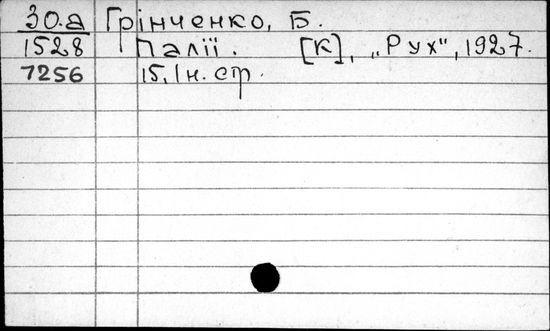 30.а Грінченко, Б.
1528 Палії. [К], „Рух", 1927.
7256 15, 1 н. стр.